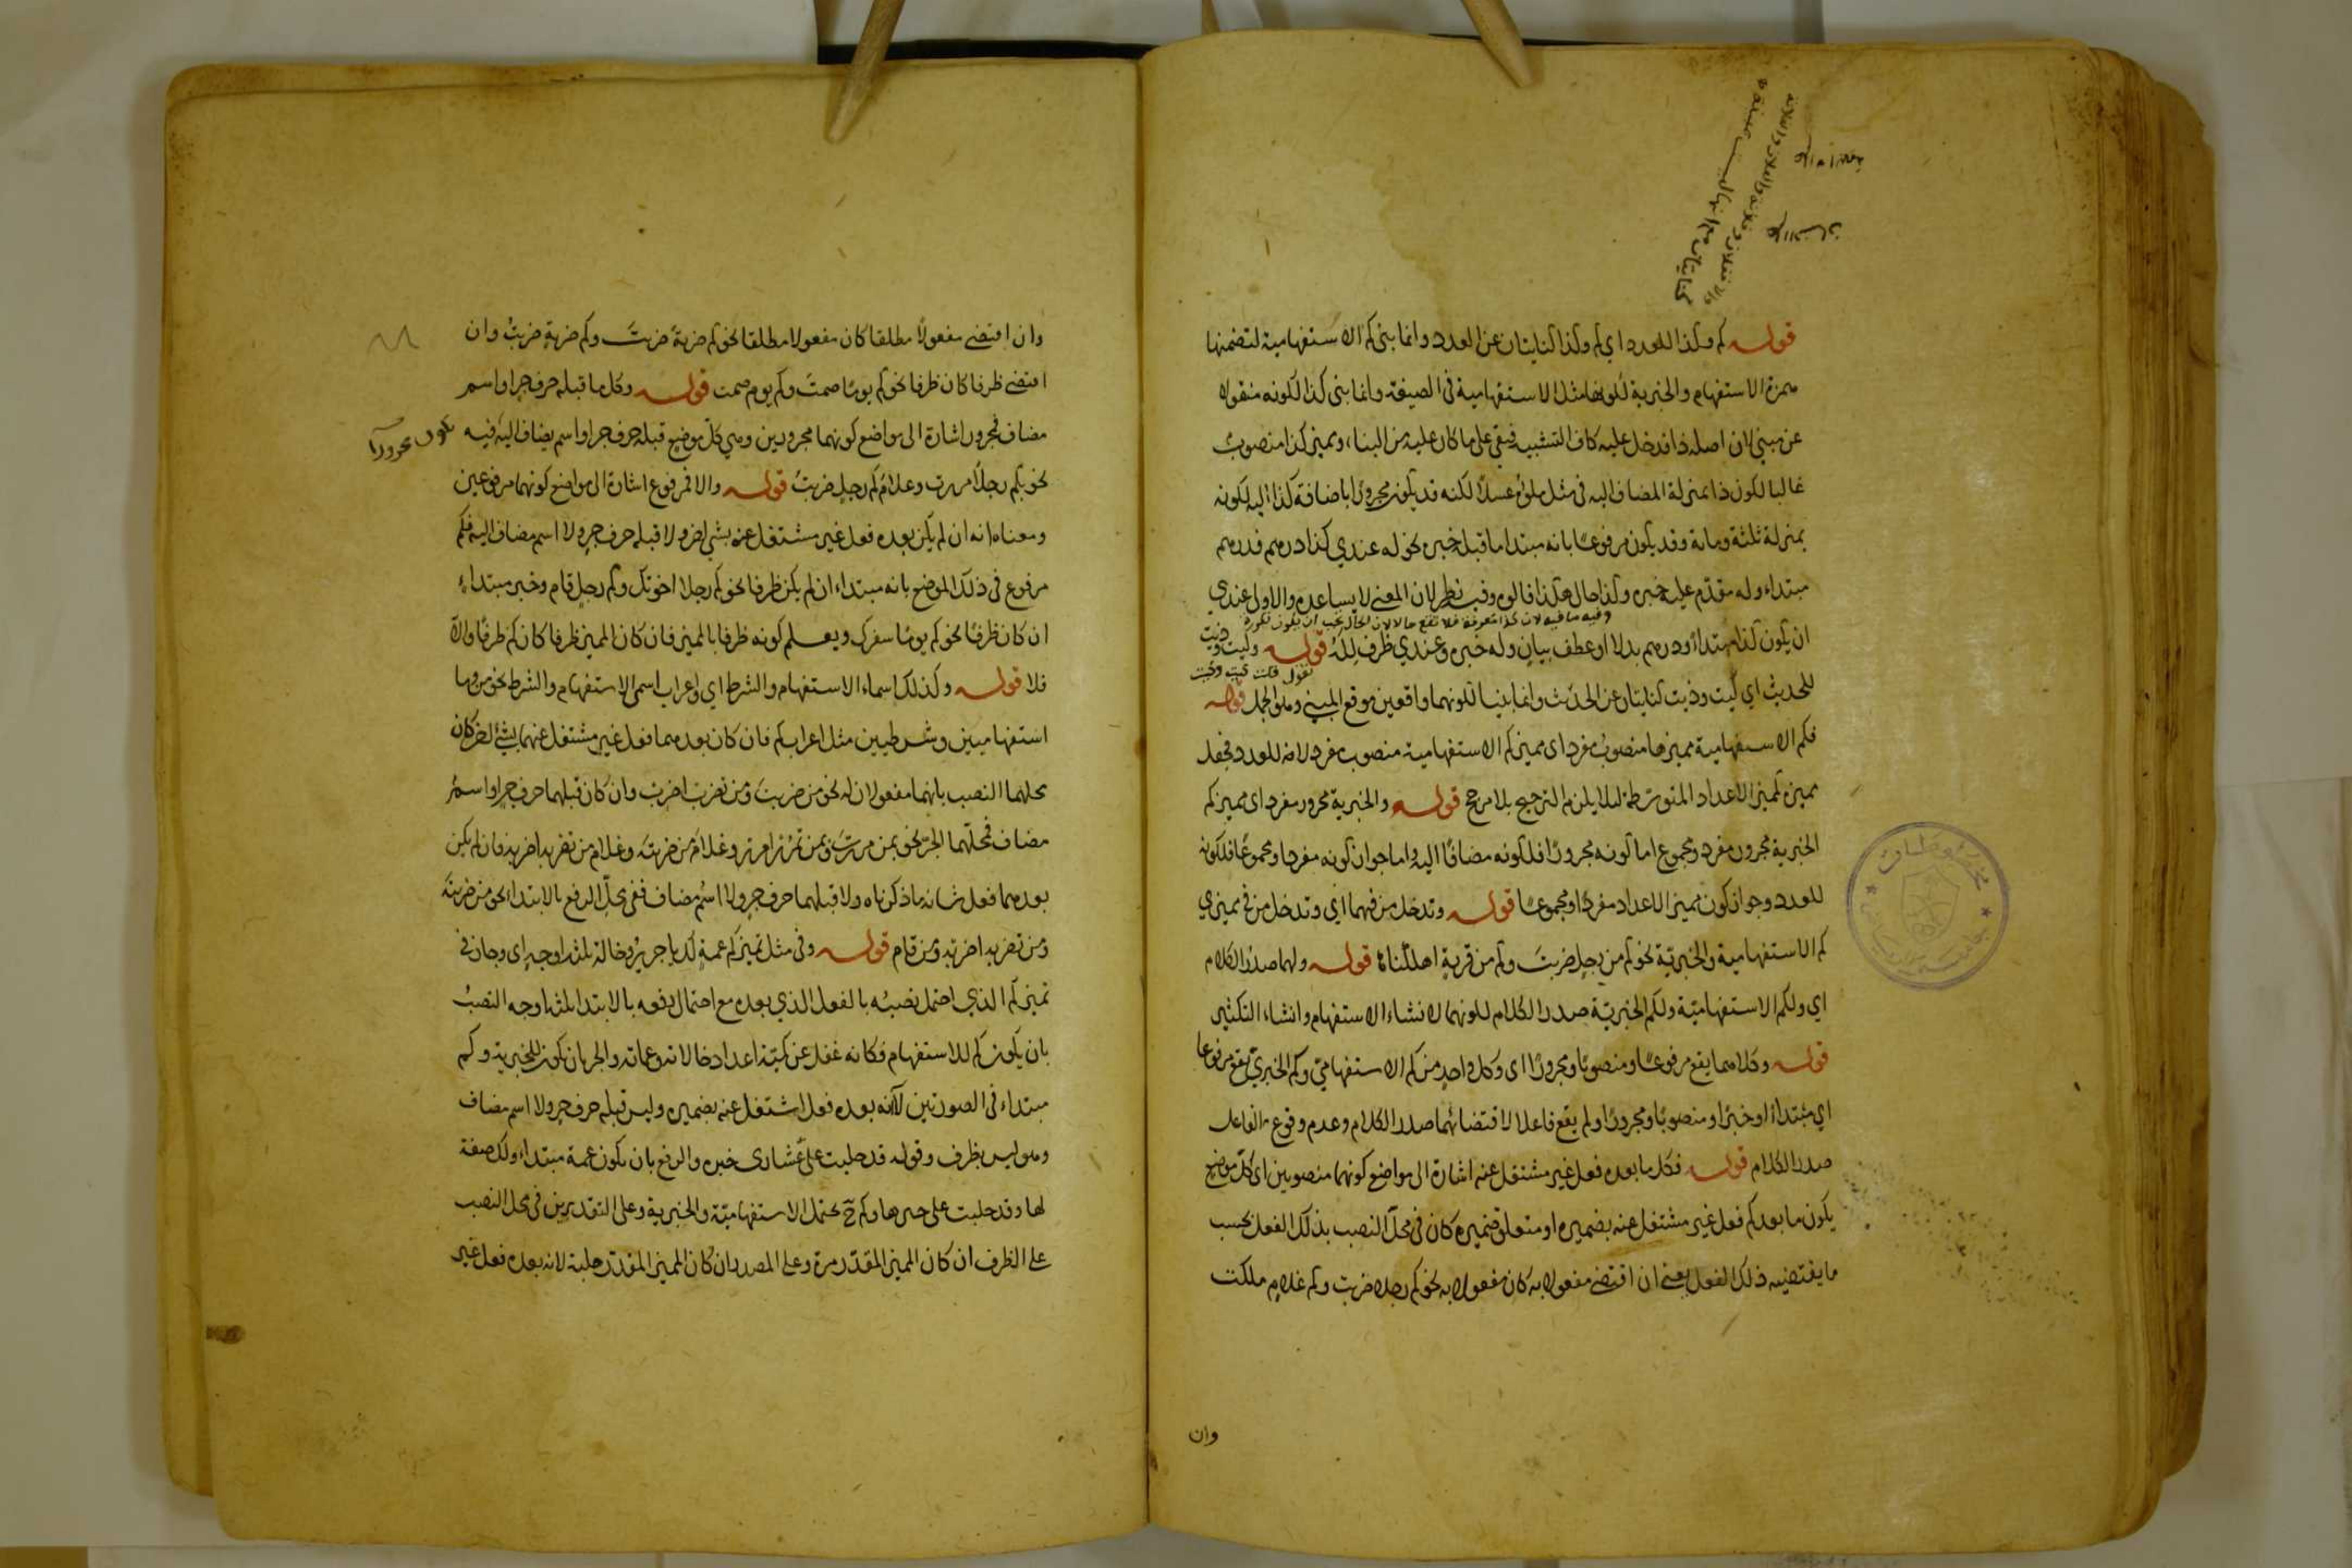 قوله كم وكذا للعدد اي كم وكذا كنايتان عن العدد وانما بنى كم الاستفهامية لتضمنها
همزة الاستفهام والخبرية لكونها مثل الاستفهامية في الصيغة وانما بنى كذا لكونه منقولا
عن مبني لان اصله ذا فدخل عليه كاف التشبيه فبقي على ما كان عليه من البناء ومميز كذا منصوب
غالبا لكون ذا بمنزلة المضاف اليه في مثل ملؤه عسلا لكنه قد يكون مجرورا باضافة كذا اليه لكونه
بمنزلة ثلثة ومائة وقد يكون مرفوعا بانه مبتدا ما قبله خبره نحو له عندي كذا درهم فدرهم
مبتداء وله مقدم عليه خبره وكذا حال هكذا قالوه وفيه نظر لان المعنى لا يساعده والاولى عندي
وفيه ما فيه لان كذا معرفة فلا تقع حالا لان الحال يجب ان يكون نكرة
ان يكون كذا مبتداء ودرهم بدلا او عطف بيان وله خبره وعندي ظرف لله قوله وكيت وذيت
للحديث اي كيت وذيت كنايتان عن الحديث وانما بنيا لكونهما واقعين موقع المبني وهو الجمل قوله
فكم الاستفهامية مميزها منصوب مفرد اى مميز كم الاستفهامية منصوب مفرد لانه للعدد فجعل
مميزه كمميز الاعداد المتوسطة لئلا يلزم الترجيح بلا مرجح قوله والخبرية مجرور مفرد اى مميز كم
الخبرية مجرور مفرد ومجموع اما كونه مجرورا فلكونه مضافا اليه واما جواز كونه مفردا ومجموعا فلكونه
للعدد وجواز كون مميز الاعداد مفردا ومجموعا قوله وتدخل من فيهما اى وتدخل من في مميزي
كم الاستفهامية والخبرية نحو كم من رجل ضربت وكم من قرية اهلكناها قوله ولهما صدر الكلام
اي ولكم الاستفهامية ولكم الخبرية صدر الكلام لكونهما لانشاء الاستفهام وانشاء التكثير
قوله وكلاهما يقع مرفوعا ومنصوبا ومجرورا اى وكل واحد من كم الاستفهامي وكم الخبري يقع مرفوعا
اي مبتداء او خبرا ومنصوبا ومجرورا ولم يقع فاعلا لاقتضائهما صدر الكلام وعدم وقوع الفاعل
صدر الكلام قوله فكل ما بعده فعل غير مشتغل عنه اشارة الى مواضع كونهما منصوبين اى كل موضع
يكون ما بعد كم فعل غير مشتغل عنه بضميره او متعلق ضميره كان في محل النصب بذلك الفعل بحسب
ما يقتضيه ذلك الفعل يعني ان اقتضى مفعولا به كان مفعولا به نحو كم رجلا ضربت وكم غلام ملكت
وان
وان اقتضى مفعولا مطلقا كان مفعولا مطلقا نحو كم ضربة ضربت وكم ضربة ضربت وان
اقتضى ظرفا كان ظرفا نحو كم يوما صمت وكم يوم صمت قوله وكل ما قبله حرف جر او اسم
مضاف فمجرور اشارة الى مواضع كونهما مجرورين وهي كل موضع قبله حرف جر او اسم يضاف اليه فيه
يكون مجرورا
نحو بكم رجلا مررت وغلام كم رجل ضربت قوله والا فمرفوع اشارة الى مواضع كونهما مرفوعين
ومعناه انه ان لم يكن بعده فعل غير مشتغل عنه بشئ اخر ولا قبله حرف جر ولا اسم مضاف اليه فكم
مرفوع في ذلك الموضع بانه مبتداء ان لم يكن ظرفا نحو كم رجلا اخوتك وكم رجل قام وخبر مبتداء
ان كان ظرفا نحو كم يوما سفرك ويعلم كونه ظرفا بالمميز فان كان المميز ظرفا كان كم ظرفا والا
فلا قوله وكذلك اسماء الاستفهام والشرط اي واعراب اسمى الاستفهام والشرط نحو من وما
استفهاميين وشرطيين مثل اعراب كم فان كان بعدهما فعل غير مشتغل عنهما بشئ اخر كان
محلهما النصب بانهما مفعولان له نحو من ضربت ومن تضرب اضرب وان كان قبلهما حرف جر او اسم
مضاف فمحلهما الجر نحو بمن مررت وبمن تمرر امرر وغلام من ضربته وغلام من تضربه اضربه فان لم يكن
بعدهما فعل شانه ما ذكرناه ولا قبلهما حرف جر ولا اسم مضاف ففي محل الرفع بالابتداء نحو من ضربته
ومن تضربه اضربه ومن قام قوله وفي مثل تميز كم عمة لك يا جرير وخالة ثلثه اوجه اى وجاز في
تميز كم الذي احتمل نصبه بالفعل الذي بعده مع احتمال رفعه بالابتدا ثلثه اوجه النصب
بان يكون كم للاستفهام فكانه غفل عن كمية اعداد خالاته وعماته والجر بان يكون للخبرية وكم
مبتداء في الصورتين لانه بعده فعل اشتغل عنه بضميره وليس قبله حرف جر ولا اسم مضاف
وهو ليس بظرف وقوله قد حلبت على عشاري خبره والرفع بان يكون عمة مبتداء ولك صفة
لها وقد حلبت على خبرها وكم ح يحتمل الاستفهامية والخبرية وعلى التقديرين في محل النصب
على الظرف ان كان المميز المقدر مرة وعلى المصدر ان كان المميز المقدر حلبة لانه بعده فعل غير